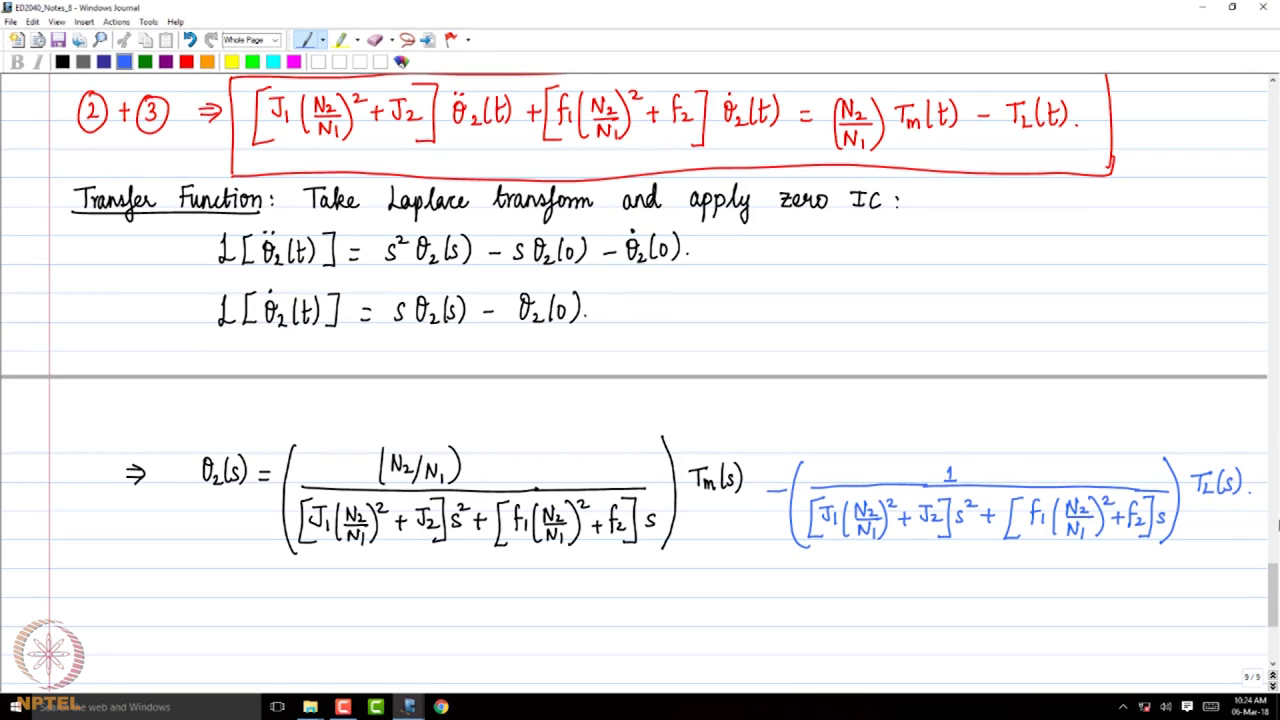 ED2040_Notes_8 - Windows Journal
File Edit View Insert Actions Tools Help
Whole Page
B I
② + ③ ⇒ [J₁(N₂/N₁)² + J₂] θ̈₂(t) + [f₁(N₂/N₁)² + f₂] θ̇₂(t) = (N₂/N₁) Tₘ(t) − T_L(t).
Transfer Function: Take Laplace transform and apply zero IC:
L[θ̈₂(t)] = s²θ₂(s) − sθ₂(0) − θ̇₂(0).
L[θ̇₂(t)] = sθ₂(s) − θ₂(0).
⇒ θ₂(s) = ((N₂/N₁) / ([J₁(N₂/N₁)² + J₂]s² + [f₁(N₂/N₁)² + f₂]s)) Tₘ(s) − (1 / ([J₁(N₂/N₁)² + J₂]s² + [f₁(N₂/N₁)² + f₂]s)) T_L(s).
9 / 9
NPTEL
Search the web and Windows
10:24 AM
06-Mar-18